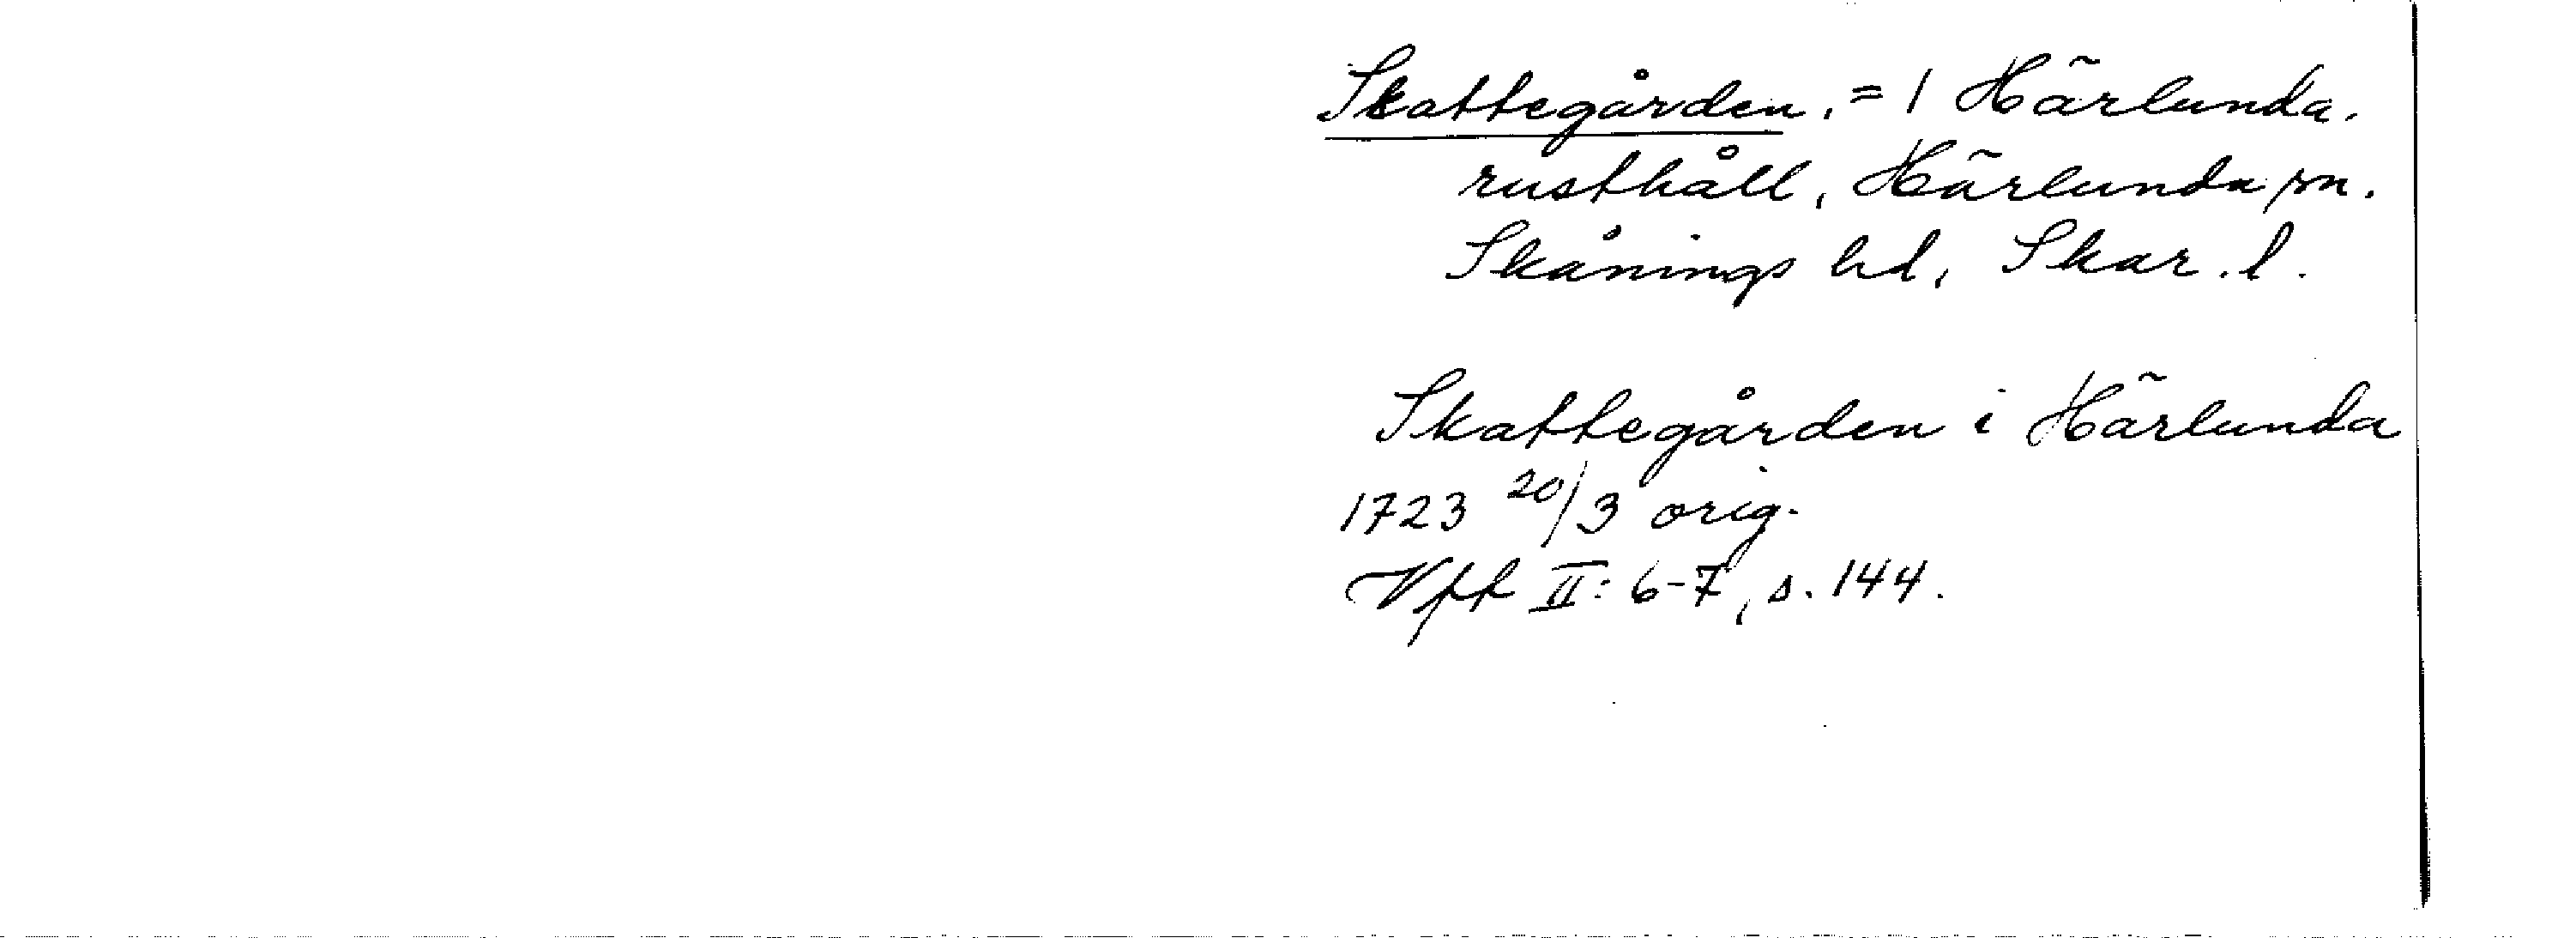 Skattegården, = 1 Härlunda.
rusthåll, Härlunda sn.
Skånings hd, Skar. l.
Skattegården i Härlunda
1723 20/3 orig.
Vft II: 6-7, s. 144.